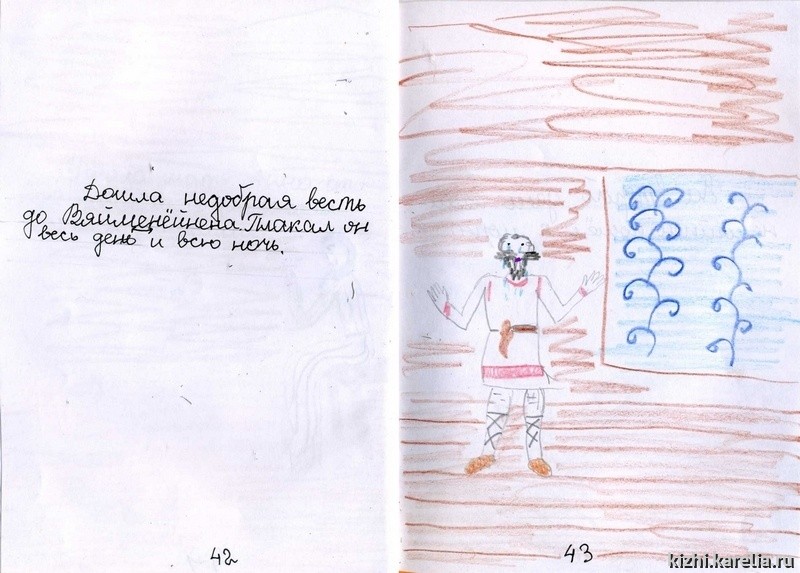 Дошла недобрая весть
до Вяйменёйнена. Плакал он
весь день и всю ночь.
42
43
kizhi.karelia.ru